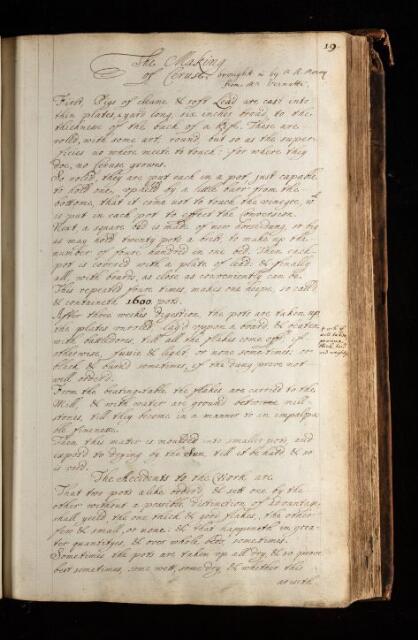 19
The Making
of Ceruse. brought in by
from Mr Vernatti.
First, Pigs of cleane & soft Lead are cast into
thin plates, a yard long, six inches broad, to the
thickness of the back of a knife. These are
rolld, with some art, round, but so as the super=
ficies no where meete to touch: for where they
doe, no Ceruse growes.
So rolld, they are put each in a pot, just capable
to hold one, upheld by a little barr from the
bottome, that it come not to touch the vineger, wch
is put in each pot to effect the conversion.
Next, a square bed is made of new horsedung, so big
as may hold twenty pots a brest, to make up the
number of foure hundred in one bed. Then each
pot is covered with a plate of lead, & finally
all, with boards, as close as conveniently can be.
This repeated foure times, makes one heape, so calld
& containeth 1600 pots.
After three weekes digestion, the pots are taken up,
the plates unrolled lay'd uppon a board, & beaten
with battledores, till all the flakes come off, if
otherwise, fusile & light, or none sometimes, or
black & burnd sometimes, if the dung prove not
well orderd.
From the beating-table the flakes are carried to the
Mill, & with water are ground betweene mill-
stones, till they become in a manner to an impalpa
ble fineness.
Then this mater is moulded into smaller pots, and
expos'd to drying by the Sun, till it be hard, & so
is used.
The Accidents to the Work are.
That two pots alike orderd, & sett one by the
other without a possible distinction of advantage,
shall yeeld, the one thick & good flakes, the other
few & small, or none: & that happeneth in grea=
ter quantityes, & over whole beds sometimes.
Sometimes the pots are taken up all dry, & so prove
best sometimes, some wett, some dry, & whether this